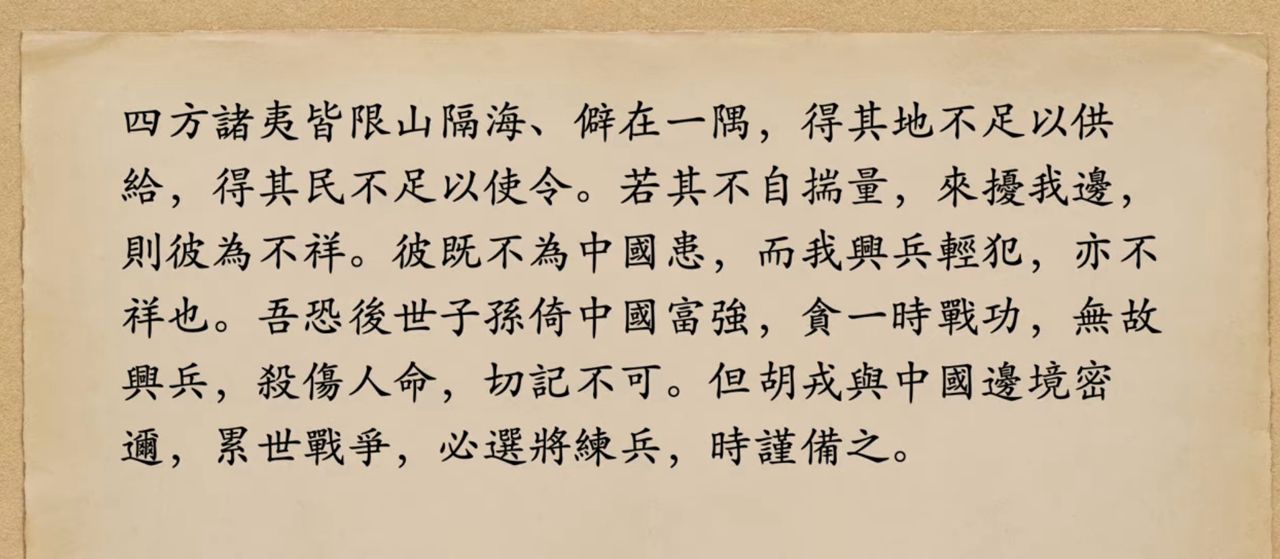 四方諸夷皆限山隔海、僻在一隅，得其地不足以供
給，得其民不足以使令。若其不自揣量，來擾我邊，
則彼為不祥。彼既不為中國患，而我興兵輕犯，亦不
祥也。吾恐後世子孫倚中國富強，貪一時戰功，無故
興兵，殺傷人命，切記不可。但胡戎與中國邊境密
邇，累世戰爭，必選將練兵，時謹備之。